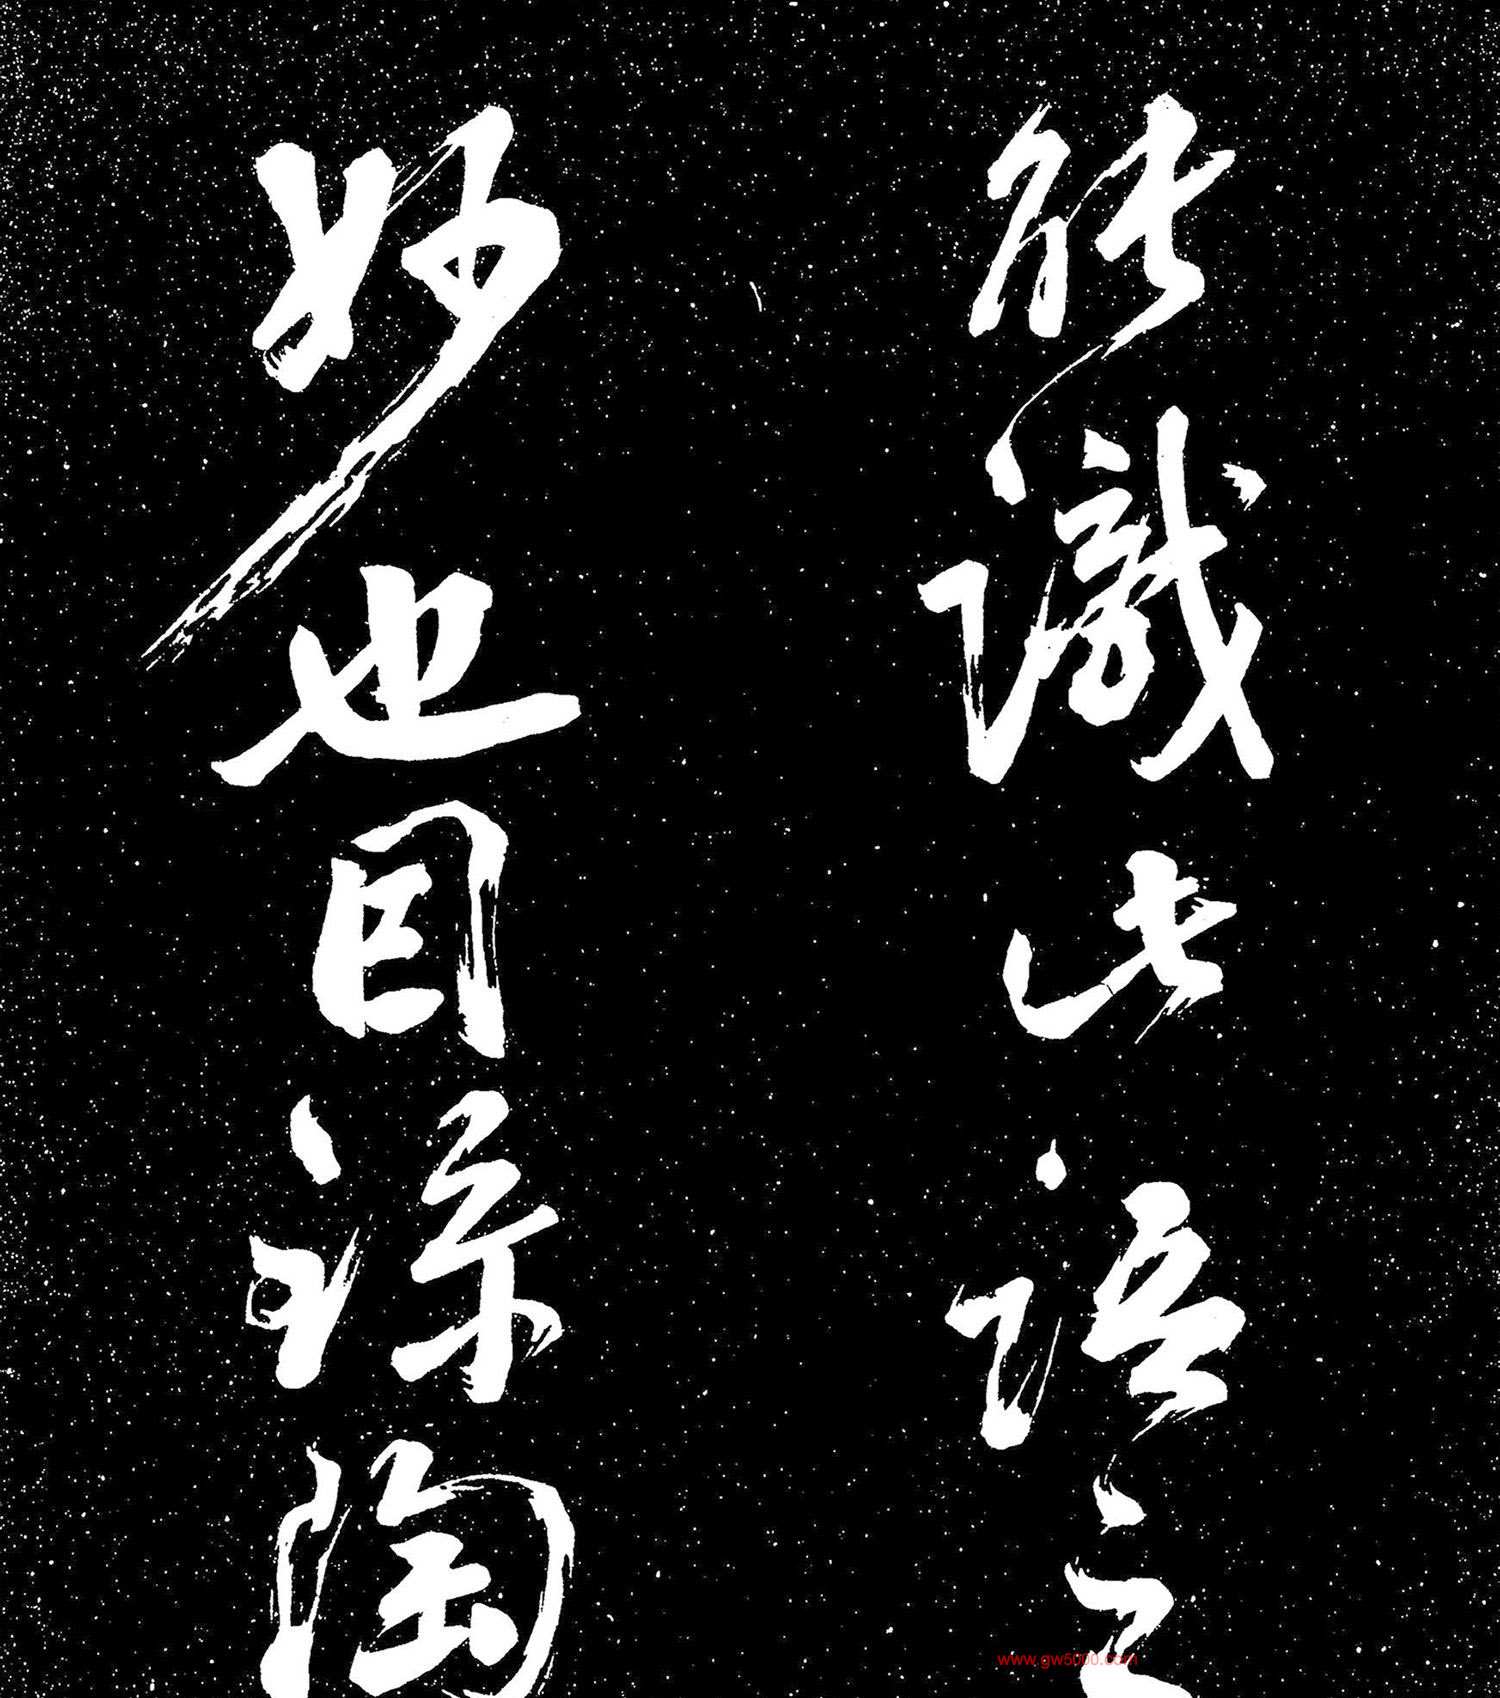 能識此語之
妙也陶
www.gw5000.com